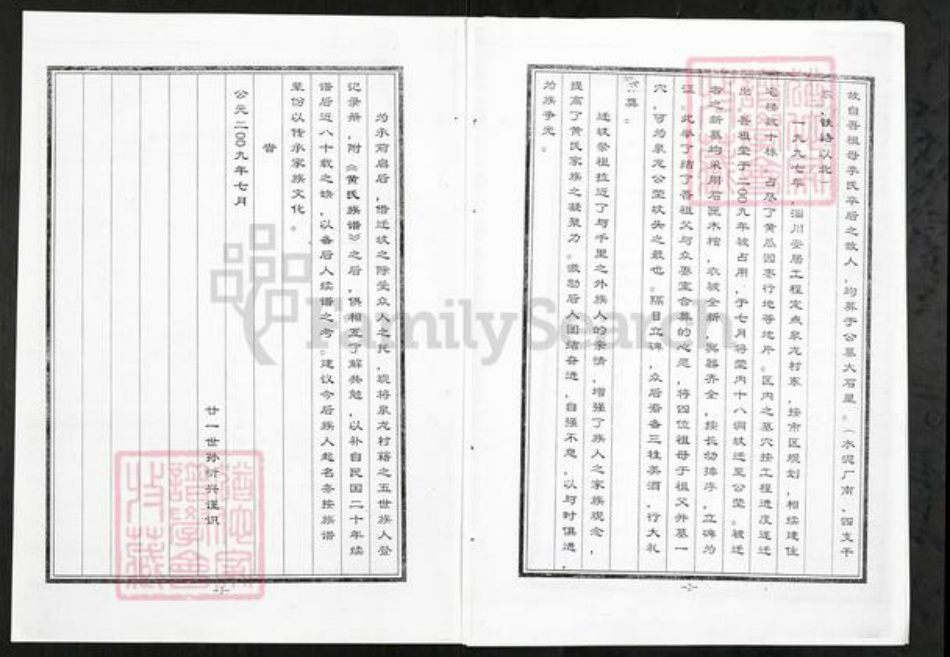 故自吾祖母李氏卒后之故人，均葬于公墓大石崖。（水泥厂南、四支干
渠、铁路以北
一九九七年，淄川安居工程定点泉龙村东，按市区规划，相续建住
宅楼数十栋，占尽了黄瓜园枣行地等地片。区内之墓穴按工程进度逐迁
出，吾祖茔于二00九年被占用，于七月将茔内十八洞坟迁至公茔。被迁
者之新墓均采用石匣木棺，衣被全新，冥器齐全，按长幼排序，立碑为
证。此举了结了吾祖父与众妻室合葬的心愿，将四位祖母于祖父外墓一
穴，可为泉龙公茔坟头之最也。隔日立碑，众后裔备三牲美酒，行大礼
祭奠。
迁坟祭祖拉近了与千里之外族人的亲情，增强了族人之家族观念，
提高了黄氏家族之凝聚力。激励后人团结奋进，自强不息，以与时俱进
为族争光。
-2-
为承前启后，借迁坟之际受众人之托，现将泉龙村籍之五世族人登
记录册，附《黄氏族谱》之后，俱相互了解共勉，以补自民国二十年续
谱后近八十载之缺，以备后人续谱之考。建议今后族人起名务按族谱
辈份以传承家族文化。
公元二00九年七月
廿一世孙 兴谨识
-3-
FamilySearch